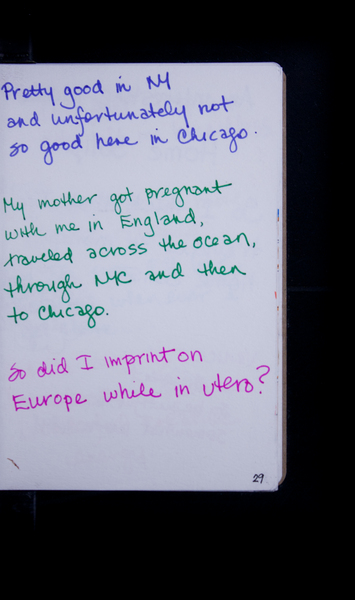 Pretty good in NY
and unfortunately not
so good here in Chicago.
My mother got pregnant
with me in England,
traveled across the ocean,
through NYC and then
to Chicago.
So did I imprint on
Europe while in utero?
29